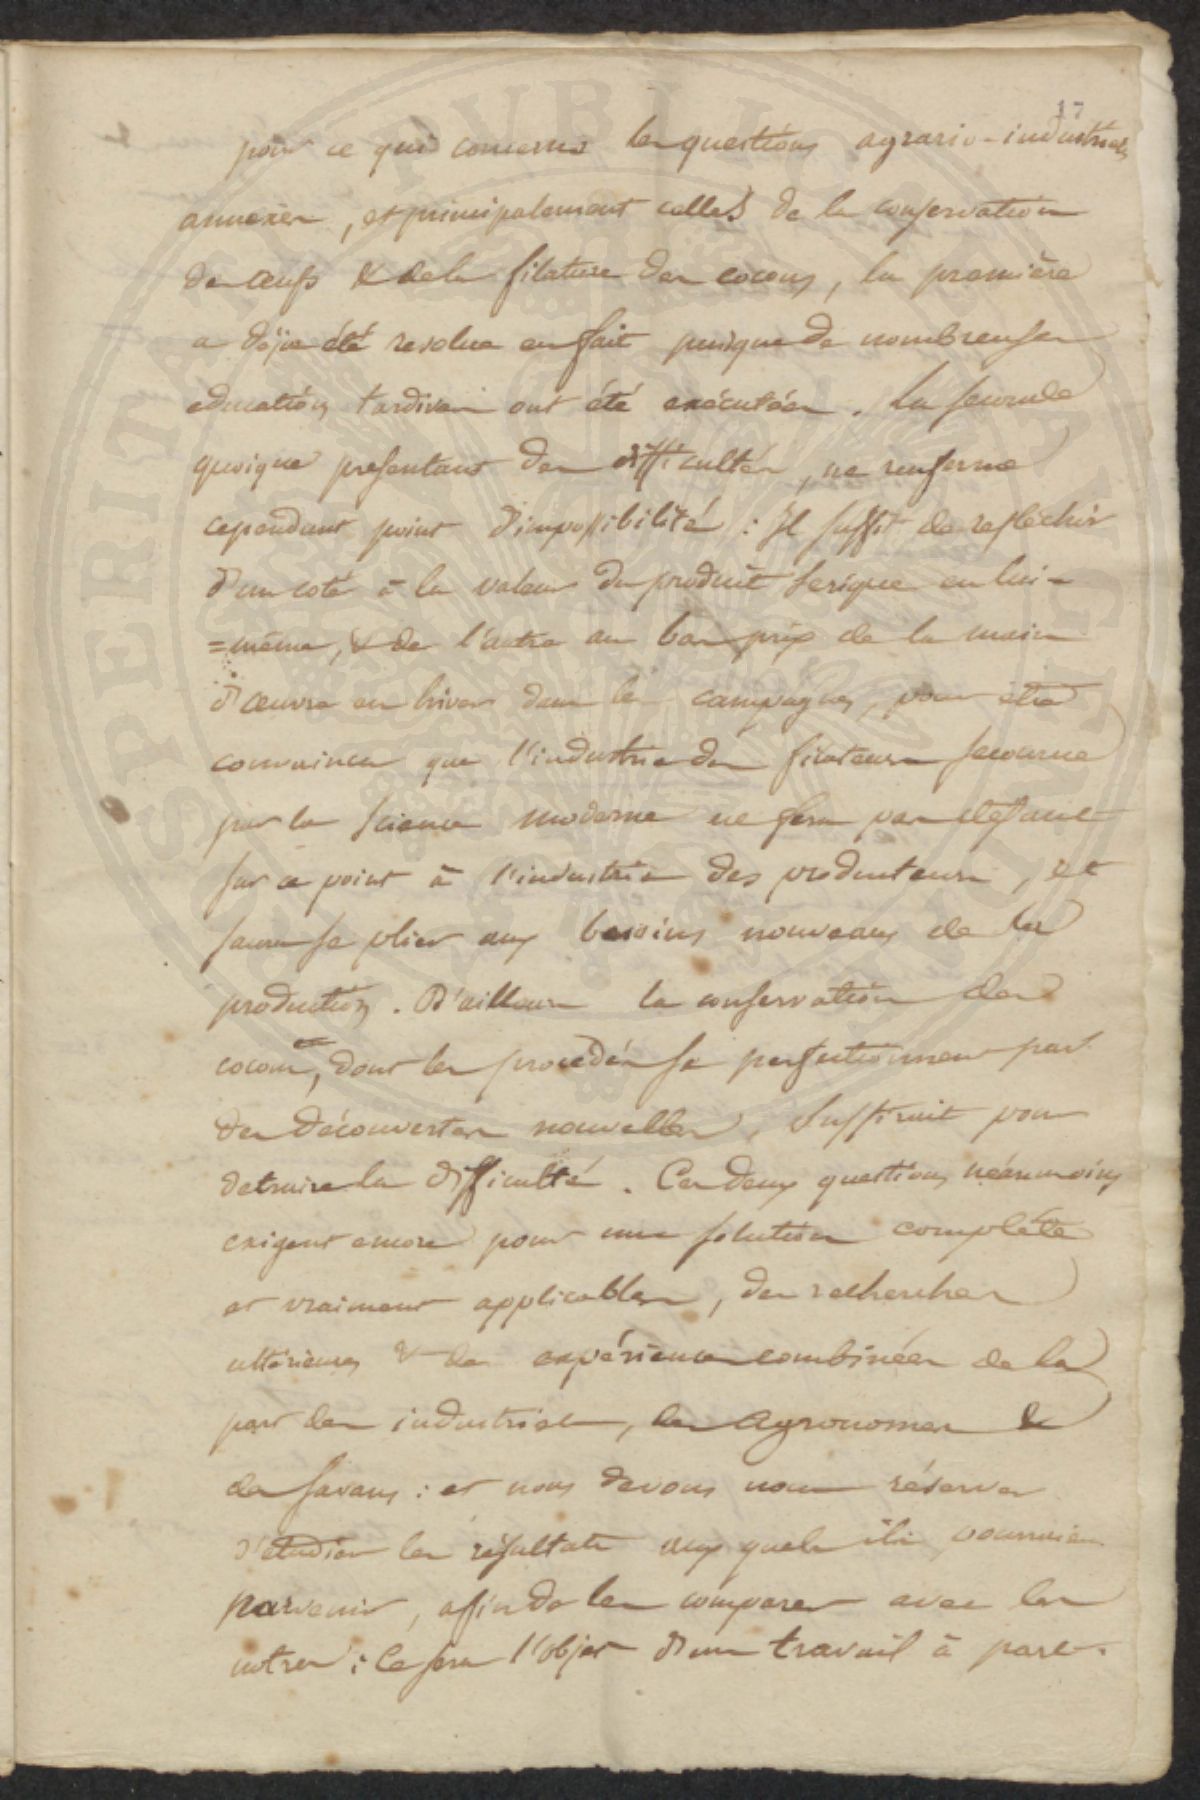 17
pour ce qui concerne les questions agrario-industriels
annexes, et principalement celles de la conservation
des œufs & de la filature des cocons, la première
a déja été resolue en fait puisque de nombreuses
educations tardives ont été exécutées. La seconde
quoique presentant des difficultés, ne renferme
cependant point d'impossibilité : Il suffit de reflèchir
d'un coté à la valeur du produit serique en lui-
=même, & de l'autre au bas prix de la main
d'œuvre en hiver dans les campagnes, pour être
convaincu que l'industrie des filateurs secourue
par la science moderne ne fera pas defaut
sur ce point à l'industrie des producteurs, et
saura se plier aux besoins nouveaux de la
production. D'ailleurs la conservation des
cocons, dont les procédés se perfectionnent par
des découvertes nouvelles, suffirait pour
detruire la difficulté. Ces deux questions néanmoins
exigent encore pour une solution complète
et vraiment applicables, des recherches
ultérieures & des expériences combinées de la
part des industriels, des Agronomes &
des savans : et nous devons nous réserver
d'etudier les résultats aux quels ils pourraient
parvenir, afin de les comparer avec les
notres : Ce sera l'objet d'un travail à part.